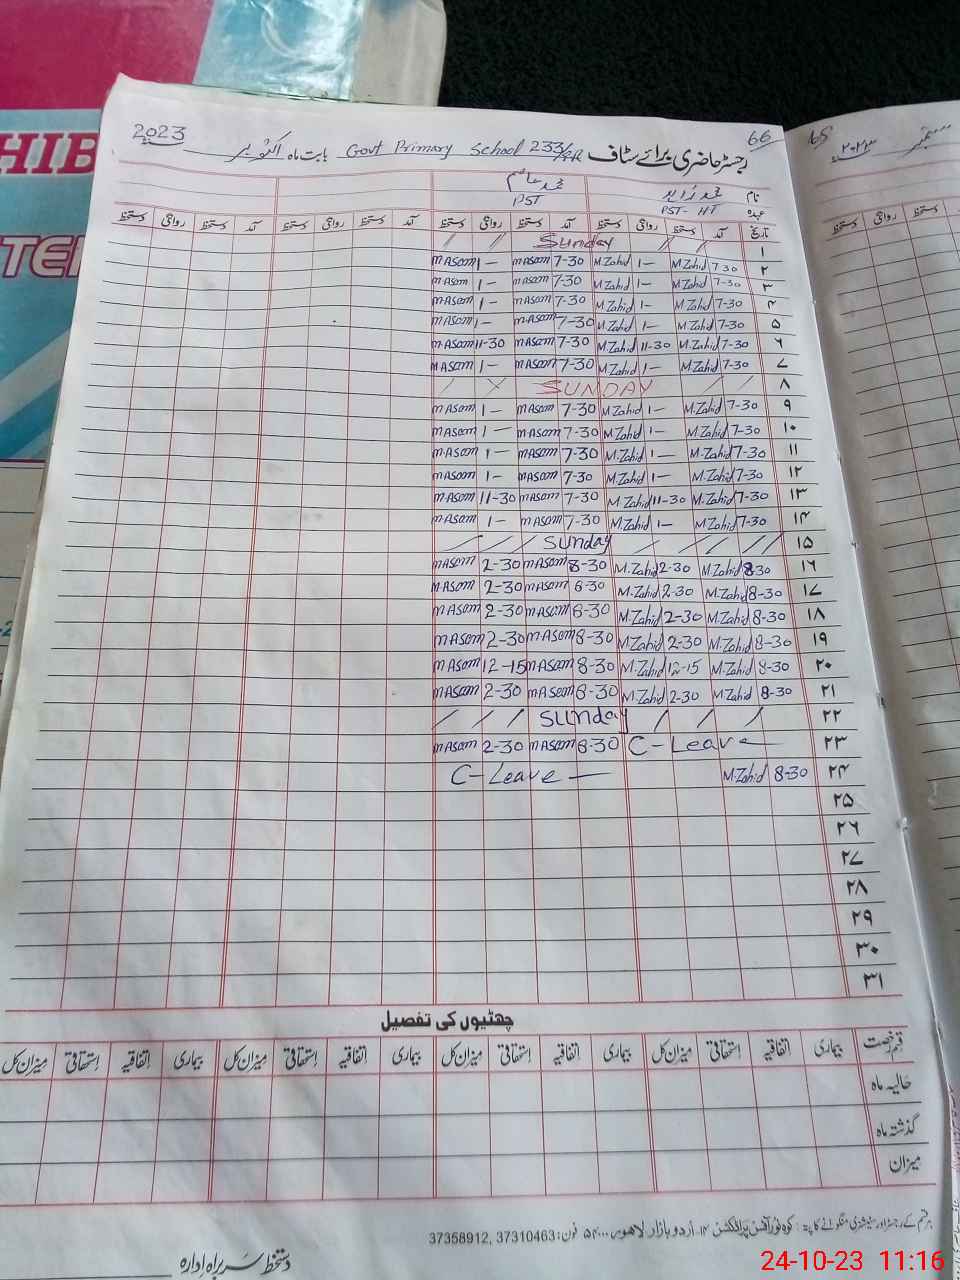 HIB
TE
2023
66
رجسٹر حاضری برائے سٹاف Govt Primary School 233/9R بابت ماہ اکتوبر 2023
نام محمد زاہد محمد عاصم
عہدہ PST- HT PST
تاریخ آمد دستخط روانگی دستخط آمد دستخط روانگی دستخط آمد دستخط روانگی دستخط آمد دستخط روانگی دستخط
۱ Sunday
۲ 7-30 M.Zahid 1- M.Zahid 7-30 M Asam 1- M Asam
۳ 7-30 M.Zahid 1- M.Zahid 7-30 M Asam 1- M Asam
۴ 7-30 M.Zahid 1- M.Zahid 7-30 M Asam 1- M Asam
۵ 7-30 M.Zahid 1- M.Zahid 7-30 M Asam 1- M Asam
۶ 7-30 M.Zahid 11-30 M.Zahid 7-30 M Asam 11-30 M Asam
۷ 7-30 M.Zahid 1- M.Zahid 7-30 M Asam 1- M Asam
۸ SUNDAY
۹ 7-30 M.Zahid 1- M.Zahid 7-30 M Asam 1- M Asam
۱۰ 7-30 M.Zahid 1- M.Zahid 7-30 M Asam 1- M Asam
۱۱ 7-30 M.Zahid 1- M.Zahid 7-30 M Asam 1- M Asam
۱۲ 7-30 M.Zahid 1- M.Zahid 7-30 M Asam 1- M Asam
۱۳ 7-30 M.Zahid 11-30 M.Zahid 7-30 M Asam 11-30 M Asam
۱۴ 7-30 M.Zahid 1- M.Zahid 7-30 M Asam 1- M Asam
۱۵ Sunday
۱۶ 8-30 M.Zahid 2-30 M.Zahid 8-30 M Asam 2-30 M Asam
۱۷ 8-30 M.Zahid 2-30 M.Zahid 8-30 M Asam 2-30 M Asam
۱۸ 8-30 M.Zahid 2-30 M.Zahid 8-30 M Asam 2-30 M Asam
۱۹ 8-30 M.Zahid 2-30 M.Zahid 8-30 M Asam 2-30 M Asam
۲۰ 8-30 M.Zahid 12-15 M.Zahid 8-30 M Asam 12-15 M Asam
۲۱ 8-30 M.Zahid 2-30 M.Zahid 8-30 M Asam 2-30 M Asam
۲۲ Sunday
۲۳ C-Leave 8-30 M Asam 2-30 M Asam
۲۴ 8-30 M.Zahid C-Leave
۲۵
۲۶
۲۷
۲۸
۲۹
۳۰
۳۱
چھٹیوں کی تفصیل
قسم رخصت بیماری اتفاقیہ استحقاقی میزان کل بیماری اتفاقیہ استحقاقی میزان کل بیماری اتفاقیہ استحقاقی میزان کل بیماری اتفاقیہ استحقاقی میزان کل
حالیہ ماہ
گذشتہ ماہ
میزان
ہر قسم کے رجسٹر اور سٹیشنری منگوانے کا پتہ: کوہ نور آفسٹ پرنٹنگ ۱۴۔ اردو بازار لاہور ۵۴۰۰۰ فون: 37310463 ,37358912
دستخط سربراہ ادارہ
65
ستمبر ۲۰۲۳
دستخط روانگی دستخط
24-10-23 11:16